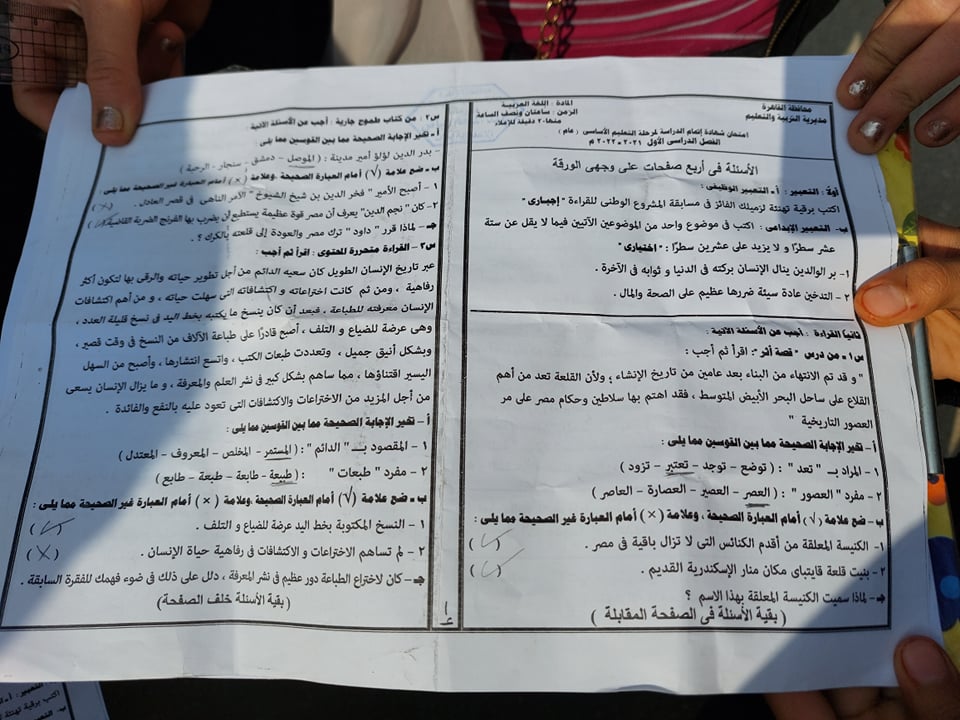 محافظة القاهرة
مديرية التربية والتعليم
المادة : اللغة العربية
الزمن : ساعتان ونصف الساعة
منها ٢٠ دقيقة للإملاء
امتحان شهادة إتمام الدراسة لمرحلة التعليم الأساسى ( عام )
الفصل الدراسى الأول ٢٠٢١ - ٢٠٢٢ م
الأسئلة فى أربع صفحات على وجهى الورقة
أولاً : التعبير : أ- التعبير الوظيفى :
اكتب برقية تهنئة لزميلك الفائز فى مسابقة المشروع الوطنى للقراءة "إجبارى"
ب- التعبير الإبداعى : اكتب فى موضوع واحد من الموضوعين الآتيين فيما لا يقل عن ستة
عشر سطرًا و لا يزيد على عشرين سطرًا : " اختيارى "
١- بر الوالدين ينال الإنسان بركته فى الدنيا و ثوابه فى الآخرة .
٢ - التدخين عادة سيئة ضررها عظيم على الصحة والمال .
ثانيا القراءة : أجب عن الأسئلة الآتية :
س١ - من درس " قصة أثر " : اقرأ ثم أجب :
" و قد تم الانتهاء من البناء بعد عامين من تاريخ الإنشاء ، ولأن القلعة تعد من أهم
القلاع على ساحل البحر الأبيض المتوسط ، فقد اهتم بها سلاطين وحكام مصر على مر
العصور التاريخية "
أ - تخير الإجابة الصحيحة مما بين القوسين مما يلى :
١ - المراد بـ " تعد " : ( توضع - توجد - تعتبر - تزود )
٢ - مفرد " العصور " : ( العصر - العصير - العصارة - العاصر )
ب - ضع علامة (√) أمام العبارة الصحيحة ، وعلامة (×) أمام العبارة غير الصحيحة مما يلى :
١- الكنيسة المعلقة من أقدم الكنائس التى لا تزال باقية فى مصر . ( √ )
٢ - بنيت قلعة قايتباى مكان منار الإسكندرية القديم . ( √ )
جـ - لماذا سميت الكنيسة المعلقة بهذا الاسم ؟
( بقية الأسئلة فى الصفحة المقابلة )
س٢ : من كتاب طموح جارية : أجب عن الأسئلة الآتية :
أ - تخير الإجابة الصحيحة مما بين القوسين مما يلى :
- بدر الدين لؤلؤ أمير مدينة : ( الموصل - دمشق - سنجار - الرحبة )
ب - ضع علامة (√) أمام العبارة الصحيحة ، وعلامة (×) أمام العبارة غير الصحيحة مما يلى :
١ - أصبح الأمير " فخر الدين بن شيخ الشيوخ " الآمر الناهى فى قصر العادل . ( × )
٢- كان " نجم الدين" يعرف أن مصر قوة عظيمة يستطيع أن يضرب بها الفرنج الضربة القاضية
جـ - لماذا قرر " داود " ترك مصر والعودة إلى قلعته بالكرك ؟ .
س٣ - القراءة متحررة المحتوى : اقرأ ثم أجب :
عبر تاريخ الإنسان الطويل كان سعيه الدائم من أجل تطوير حياته والرقى بها لتكون أكثر
رفاهية ، ومن ثم كانت اختراعاته و اكتشافاته التى سهلت حياته ، و من أهم اكتشافات
الإنسان معرفته للطباعة . فبعد أن كان ينسخ ما يكتبه بخط اليد فى نسخ قليلة العدد ،
وهى عرضة للضياع و التلف ، أصبح قادرًا على طباعة الآلاف من النسخ فى وقت قصير ،
وبشكل أنيق جميل ، وتعددت طبعات الكتب ، واتسع انتشارها ، وأصبح من السهل
اليسير اقتناؤها ، مما ساهم بشكل كبير فى نشر العلم والمعرفة ، و ما يزال الإنسان يسعى
من أجل المزيد من الاختراعات والاكتشافات التى تعود عليه بالنفع والفائدة .
أ - تخير الإجابة الصحيحة مما بين القوسين مما يلى :
١ - المقصود بـ " الدائم " : ( المستمر - المخلص - المعروف - المعتدل )
٢ - مفرد " طبعات " : ( طبيعة - طابعة - طبعة - طابع )
ب - ضع علامة (√) أمام العبارة الصحيحة ، وعلامة ( × ) أمام العبارة غير الصحيحة مما يلى :
١ - النسخ المكتوبة بخط اليد عرضة للضياع و التلف . ( √ )
٢ - لم تساهم الاختراعات و الاكتشافات فى رفاهية حياة الإنسان . ( × )
جـ - كان لاختراع الطباعة دور عظيم فى نشر المعرفة ، دلل على ذلك فى ضوء فهمك للفقرة السابقة .
( بقية الأسئلة خلف الصفحة )